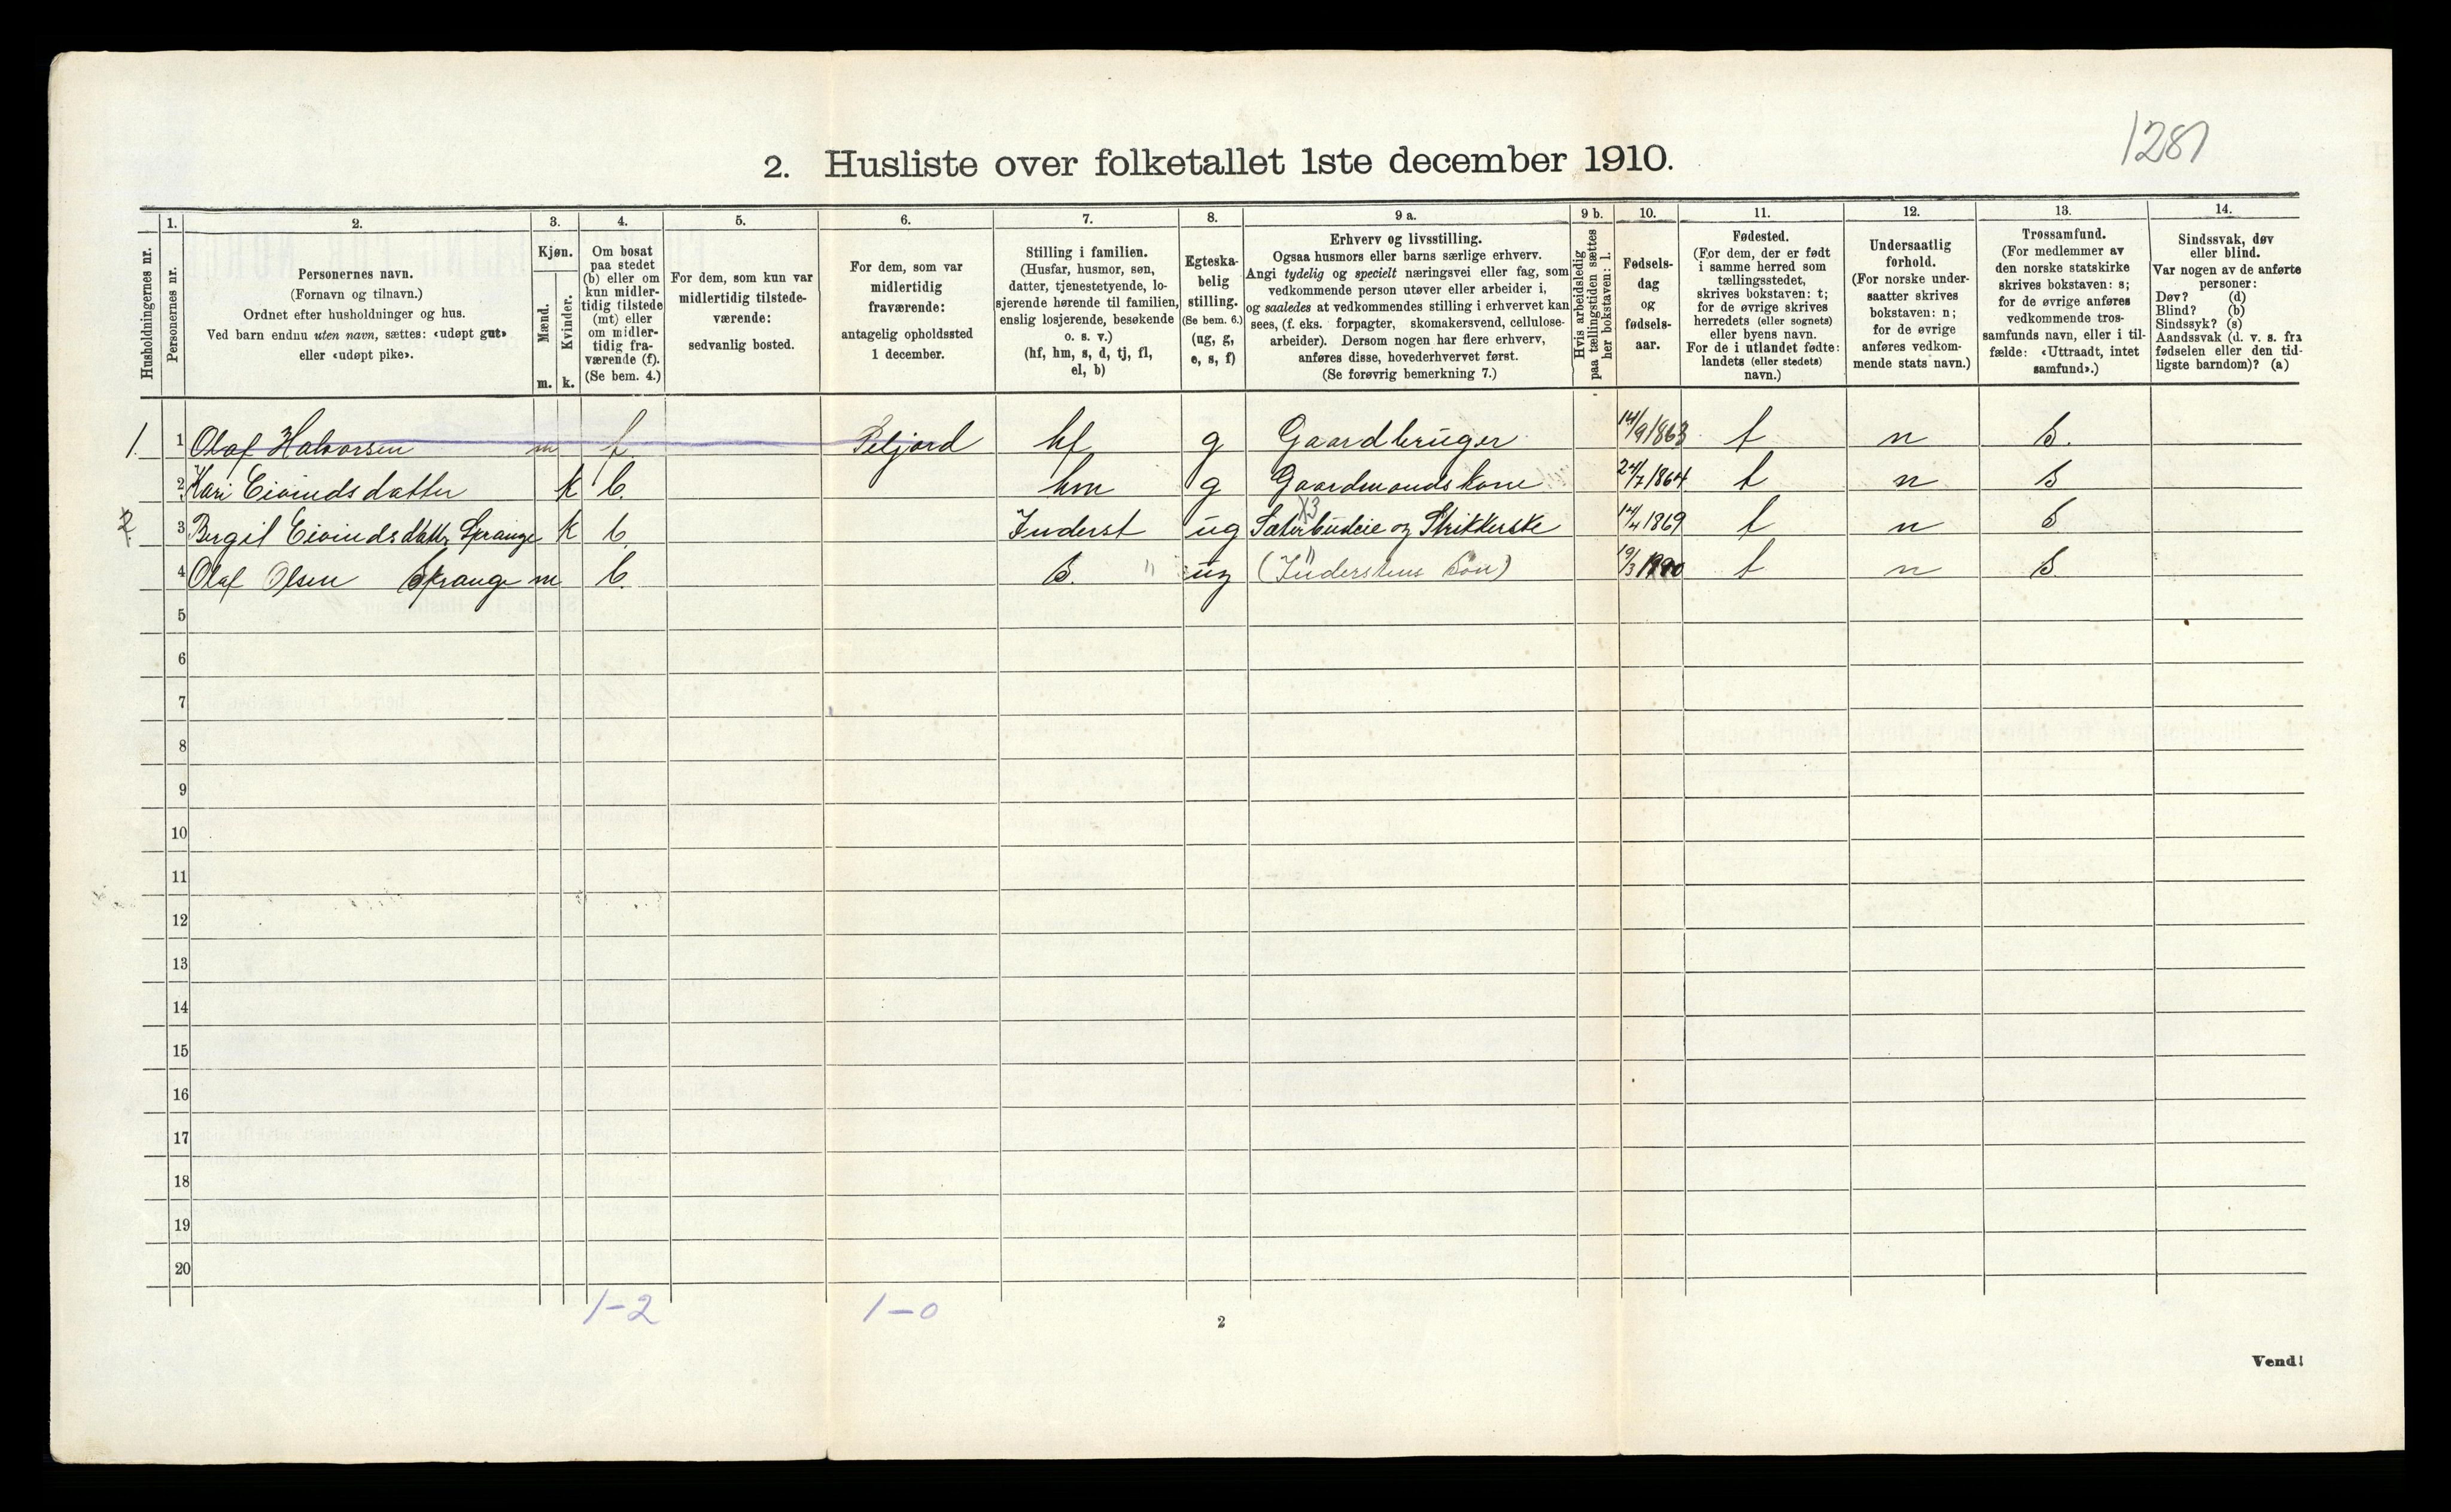 1281
2. Husliste over folketallet 1ste december 1910.
Husholdningernes nr.
1.
Personernes nr.
2.
Personernes navn.
(Fornavn og tilnavn.)
Ordnet efter husholdninger og hus.
Ved barn endnu uten navn, sættes: «udøpt gut»
eller «udøpt pike».
3.
Kjøn.
Mænd.
m.
Kvinder.
k.
4.
Om bosat
paa stedet
(b) eller om
kun midler-
tidig tilstede
(mt) eller
om midler-
tidig fra-
værende (f).
(Se bem. 4.)
5.
For dem, som kun var
midlertidig tilstede-
værende:
sedvanlig bosted.
6.
For dem, som var
midlertidig
fraværende:
antagelig opholdssted
1 december.
7.
Stilling i familien.
(Husfar, husmor, søn,
datter, tjenestetyende, lo-
sjerende hørende til familien,
enslig losjerende, besøkende
o. s. v.)
(hf, hm, s, d, tj, fl,
el, b)
8.
Egteska-
belig
stilling.
(Se bem. 6.)
(ug, g,
e, s, f)
9 a.
Erhverv og livsstilling.
Ogsaa husmors eller barns særlige erhverv.
Angi tydelig og specielt næringsvei eller fag, som
vedkommende person utøver eller arbeider i,
og saaledes at vedkommendes stilling i erhvervet kan
sees, (f. eks. forpagter, skomakersvend, cellulose-
arbeider). Dersom nogen har flere erhverv,
anføres disse, hovederhvervet først.
(Se forøvrig bemerkning 7.)
9 b.
Hvis arbeidsledig
paa tællingstiden sættes
her bokstaven: l.
10.
Fødsels-
dag
og
fødsels-
aar.
11.
Fødested.
(For dem, der er født
i samme herred som
tællingsstedet,
skrives bokstaven: t;
for de øvrige skrives
herredets (eller sognets)
eller byens navn.
For de i utlandet fødte:
landets (eller stedets)
navn.)
12.
Undersaatlig
forhold.
(For norske under-
saatter skrives
bokstaven: n;
for de øvrige
anføres vedkom-
mende stats navn.)
13.
Trossamfund.
(For medlemmer av
den norske statskirke
skrives bokstaven: s;
for de øvrige anføres
vedkommende tros-
samfunds navn, eller i til-
fælde: «Uttraadt, intet
samfund».)
14.
Sindssvak, døv
eller blind.
Var nogen av de anførte
personer:
Døv? (d)
Blind? (b)
Sindssyk? (s)
Aandssvak (d. v. s. fra
fødselen eller den tid-
ligste barndom)? (a)
1. 1 Olaf Halvorsen m f Seljord hf g Gaardbruger 14/9 1863 t n S.
2 Kari Eivindsdatter k b. hm g Gaardmandskone 24/7 1864 t n S
2. 3 Bergit Eivindsdatter Sprange k b. Inderst ug Sæterbudeie og Strikkerske 14/4 1869 t n S
4 Olaf Olsen Sprange m b. S. " ug (Inderstens Søn) 19/3 1900 t n S.
5
6
7
8
9
10
11
12
13
14
15
16
17
18
19
20
1-2 1-0
2
Vend!